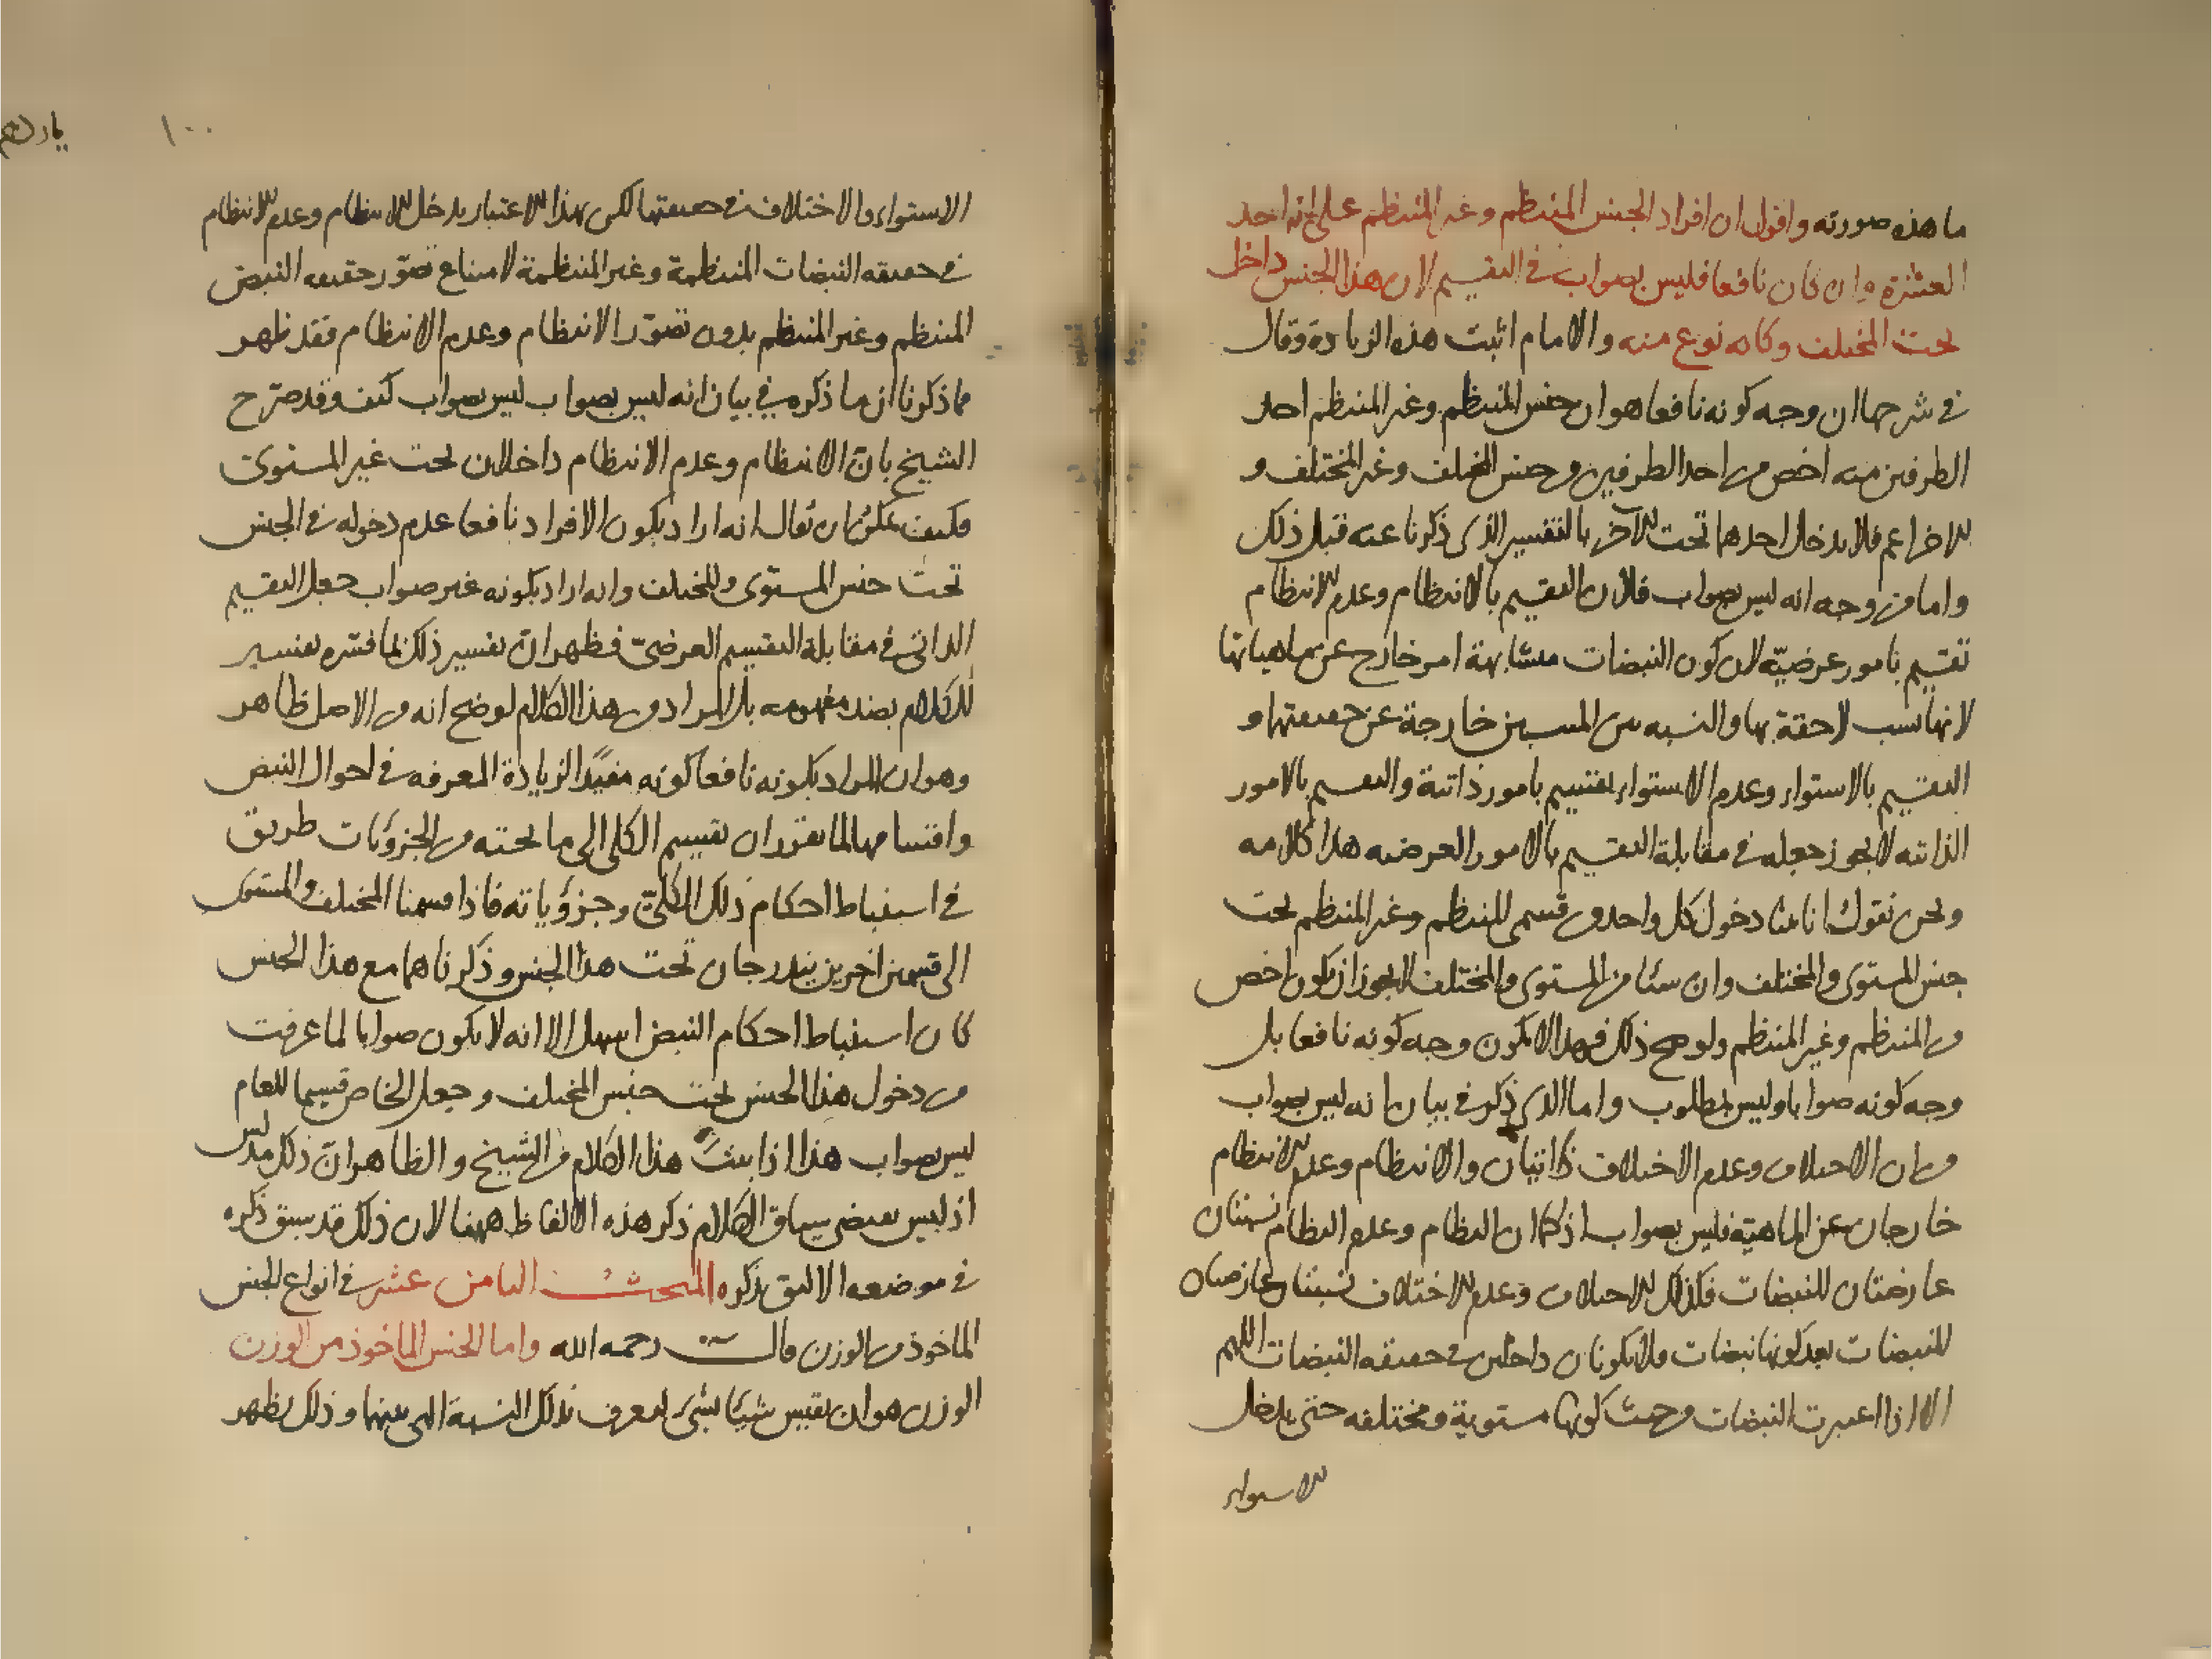 ما هذه صورته واقول ان افراد الجنس المنتظم وغير المنتظم على انه احد
العشرة وان كان نافعا فليس بصواب في التقسيم لان هذا الجنس داخل
تحت المختلف وكانه نوع منه والامام اثبت هذه الزيادة وقال
في شرحها ان وجه كونه نافعا هو ان جنس المنتظم وغير المنتظم احد
الطرفين منه اخص من احد الطرفين من جنس المختلف وغير المختلف و
الاخر اعم فلا يدخل احدهما تحت الاخر بالتفسير الذي ذكرنا عنه قبل ذلك
واما من وجه انه ليس بصواب فلان التقسيم بالانتظام وعدم الانتظام
تقسيم بامور عرضيّة لان كون النبضات متشابهة امر خارج عن ماهياتها
لانها نسب لاحقة بها والنسبه بين المنتسبين خارجة عن حقيقتها و
التقسيم بالاستواء وعدم الاستواء تقسيم بامور ذاتية والتقسيم بالامور
الذاتيه لا يجوز جعله في مقابلة التقسيم بالامور العرضيه هذا كلامه
ونحن نقول انا بينا دخول كل واحد من قسمي المنتظم وغير المنتظم تحت
جنس المستوى والمختلف وان شيئا من المستوى والمختلف لا يجوز ان يكون اخص
من المنتظم وغير المنتظم ولو صح ذلك فهذا لا يكون وجه كونه نافعا بل
وجه كونه صوابا وليس بمطلوب واما الذي ذكره في بيان انه ليس بصواب
من ان الاختلاف وعدم الاختلاف ذاتيان والانتظام وعدم الانتظام
خارجان عن الماهيّة فليس بصواب اذ كما ان النظام وعدم النظام نسبتان
عارضتان للنبضات فكذلك الاختلاف وعدم الاختلاف نسبتان عارضتان
للنبضات بعد كونها نبضات فلا يكونان داخلين في حقيقه النبضات اللهم
الا اذا اعتبرت النبضات من حيث كونها مستوية ومختلفه حتى يدخل
الاستواء
١٠٠
الاستواء والاختلاف في حقيقتها لكن بهذا الاعتبار يدخل الانتظام وعدم الانتظام
في حقيقه النبضات المنتظمة وغير المنتظمة لامتناع تصوّر حقيقه النبض
المنتظم وغير المنتظم بدون تصوّر الانتظام وعدم الانتظام فقد ظهر
مما ذكرنا ان ما ذكره في بيان انه ليس بصواب ليس بصواب كيف وقد صرّح
الشيخ بانّ الانتظام وعدم الانتظام داخلان تحت غير المستوى
فكيف يمكن ان يقال انه اراد بكون الافراد نافعا عدم دخوله في الجنس
تحت جنس المستوى والمختلف وانه اراد بكونه غير صواب جعل التقسيم
الذاتى في مقابلة التقسيم العرضىّ فظهر انّ تفسير ذلك بما فسّره تفسير
للكلام بضد مفهومه بل المراد من هذا الكلام لوضح انه من الاصل ظاهر
وهو ان المراد بكونه نافعا كونه مفيدًا لزيادة المعرفه في احوال النبض
واقتسامها لما تقرر ان تقسيم الكلى الى ما تحته من الجزؤيات طريق
في استنباط احكام ذلك الكلىّ وجزؤياته فاذا قسمنا المختلف والمستوى
الى قسمين اخرين يندرجان تحت هذا الجنس وذكرناهما مع هذا الجنس
كان استنباط احكام النبض اسهل الا انه لا يكون صوابا لما عرفت
من دخول هذا الجنس تحت جنس المختلف وجعل الخاص قسيما للعام
ليس بصواب هذا اذا ثبت هذا الكلام من الشيخ والظاهر انّ ذلك مدلس
اذ ليس يقتضى سياق الكلام ذكر هذه الالفاظ ههنا لان ذلك قد سبق ذكره
في موضعه الاليق بذكره المبحث الثامن عشر في انواع الجنس
الماخوذ من الوزن قال رحمه الله واما الجنس الماخوذ من الوزن
الوزن هو ان يقيس شيئا بشيء ليعرف بذلك النسبة التى بينهما وذلك يظهر